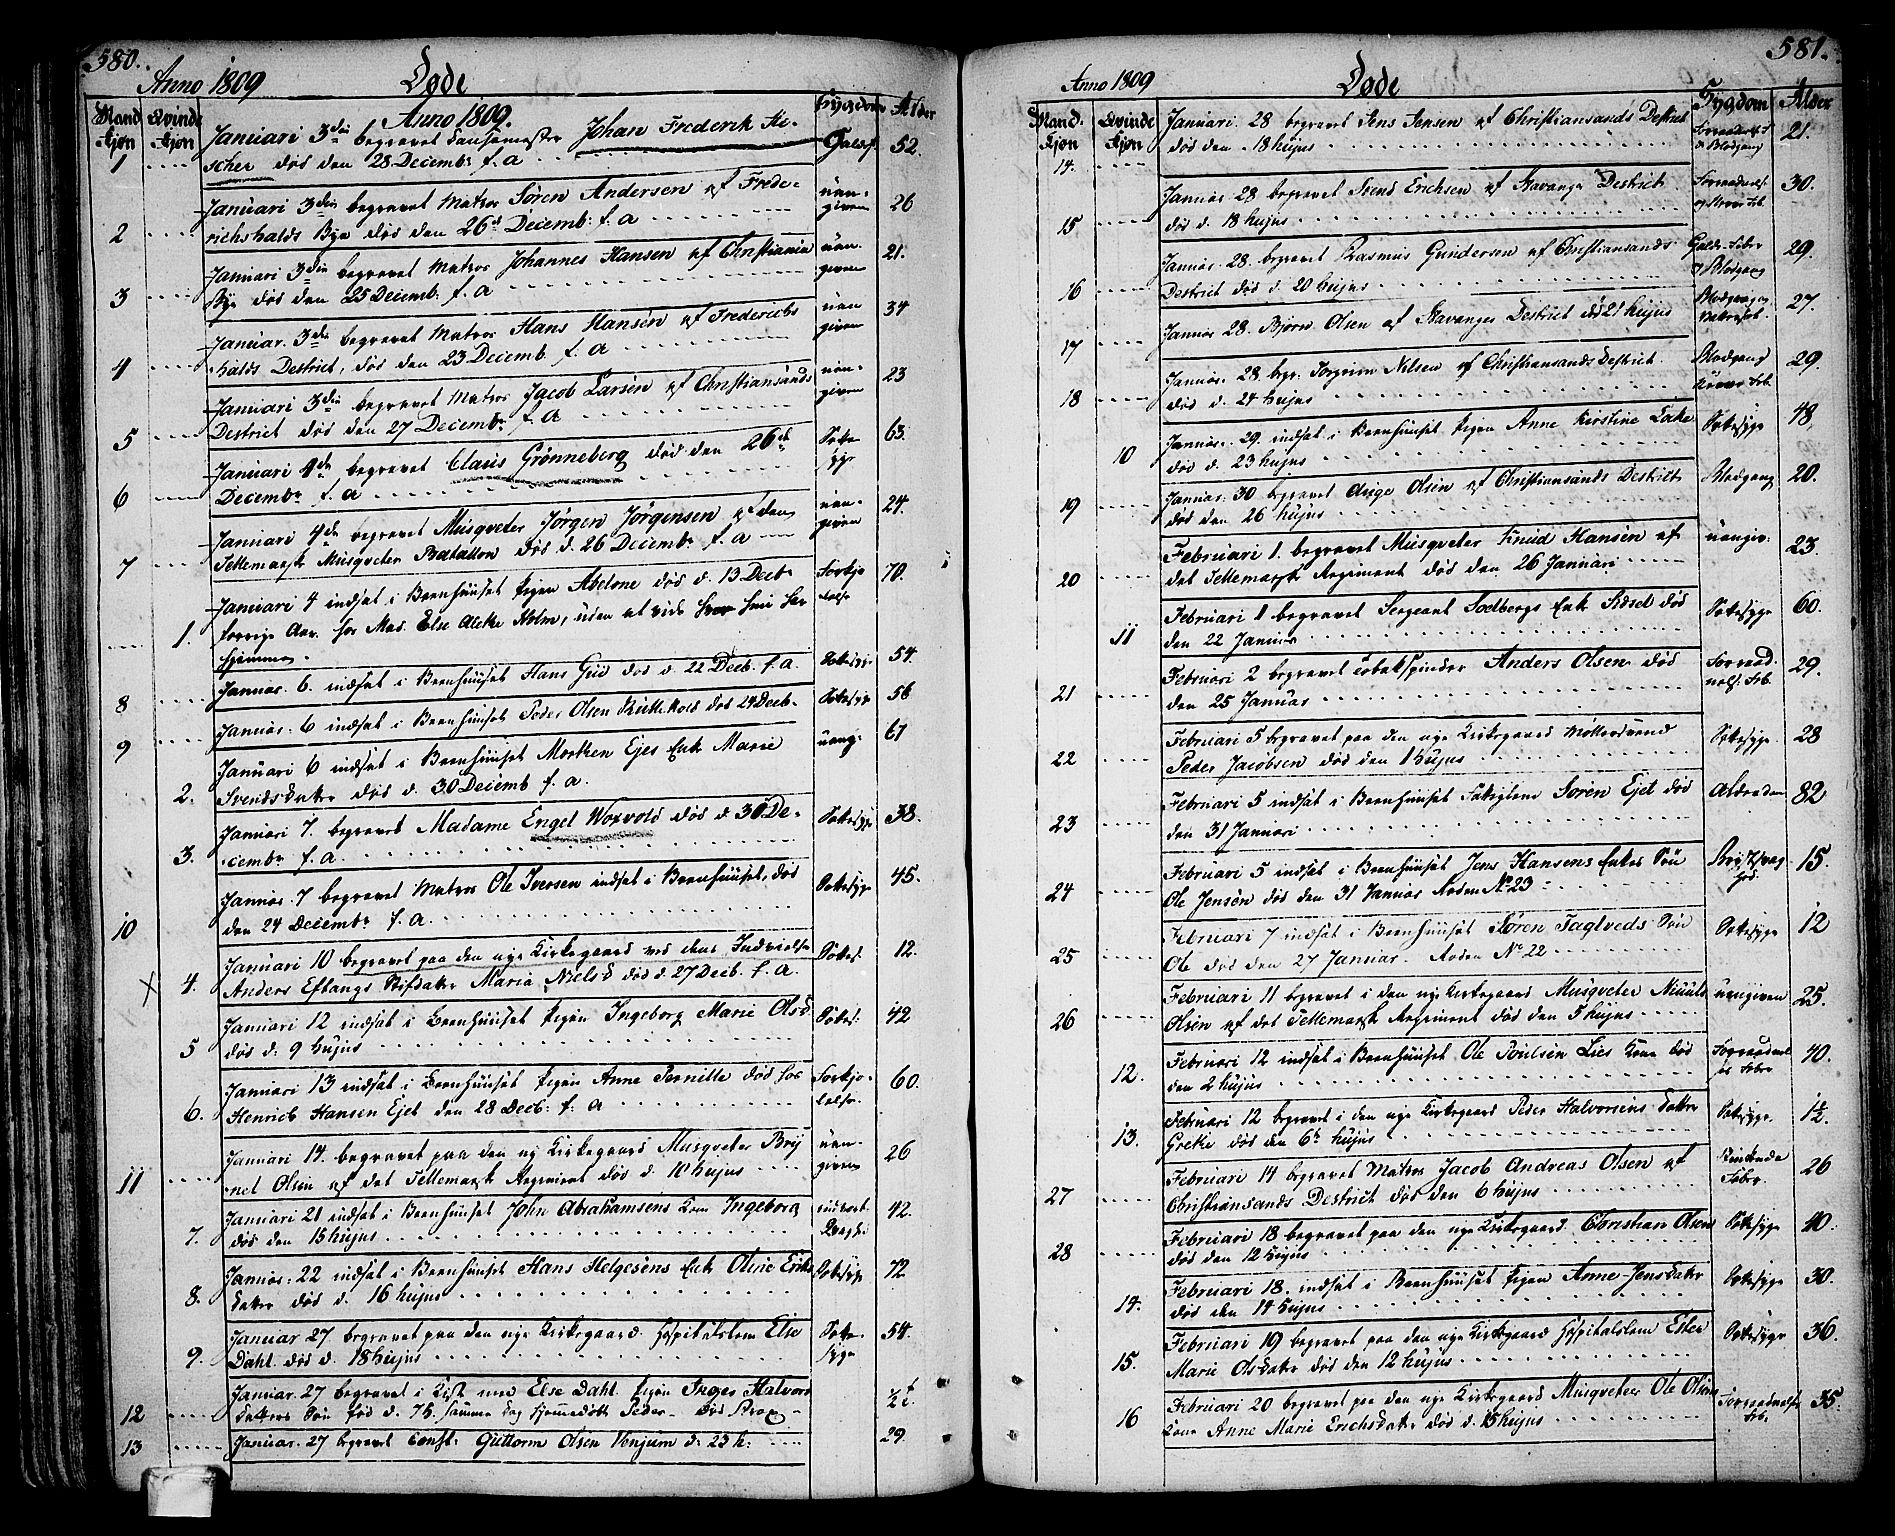 580.
Anno 1809
Døde
Mand Kjøn
Qvinde Kjøn
Anno 1809.
Sygdom
Alder
1 Januari 3die begravet Johan Frederik
scher død den 28 Decembr f. a 52.
2 Januari 3die begravet Matros Søren Andersen af Frede-
richshalds Bye død den 26d Decemb: f. a uan-given 26
3 Januari 3die begravet Matros Johannes Hansen af Christiania
Bye død den 25 Decemb: f. a uan-given 21.
4 Januar. 3die begravet Matros Hans Hansen af Fredericks
halds District, død den 23 Decemb. f. a uan given 34
5 Januari 3die begravet Matros Jacob Larsen af Christiansands
Destrict død den 27 Decembr f. a uan-given 23
6 Januari 4de begravet Claus Grønneberg død den 26de
Decembr f. a Sotesyge 63.
7 Januari 4de begravet Musqveter Jørgen Jørgensen af den
Tellemarsk Musqveter Batallon død d. 26 Decembr f. a uan-given 24.
1. Januari 4 indsat i Beenhuuset Pigen Abelone død d. 13 Decbr
forrige Aar hos Mad. Else Holm, uden at vide
hjemme. 70.
8 Januar. 6. indsat i Beenhuuset Hans Gud død d. 22 Decb. f. a. Sotesyge 54.
9 Januar. 6 indsat i Beenhuuset Peder Olsen død 24 Decb. Sotesyge 56
2. Januari 6 indsat i Beenhuuset Morthen Ejes Enk Marie
Svendsdatter død d. 30 Decemb f. a. uang: 61
3. Januari 7. begravet Madame Engel Woxvold død d 30 De-
cembr f. a. Sotesyge 38.
10 Januar. 7 begravet Matros Ole Iversen indsat i Beenhuuset, død
den 24 Decembr f. a. Sotesyge 45.
4. Januari 10 begravet paa den nye Kirkegaard ved dens Indvielse
Anders Eftangs Stifdatter Maria Nielsd død d. 27 Decb. f. a. Sotes: 12.
5 Januari 12 indsat i Beenhuuset Pigen Ingeborg Marie Olsd.
død d: 9 hujus Sotes: 42
6. Januari 13 indsat i Beenhuuset Pigen Anne Pernille død hos
Henrich Hansen Ejet den 28 Decb: f: a 60.
11 Januari 14. begravet paa den ny Kirkegaard Musqveter Brij
nel Olsen af det Tellemarsk Regiment død d. 10 hujus uan-given 26
7. Januari 21 indsat i Beenhuuset John Abrahamsens Kone Ingeborg
død den 15 hujus 42.
8. Januar: 22 indsat i Beenhuuset Hans Helgesens Enk Oline Erichs
datter død d. 16 hujus Sotesyge 72
9. Januar 27 begravet paa den nye Kirkegaard. Hospitalslem Else
Dahl. død d. 18 hujus Sotesyge 54.
12 Januar. 27 begravet i Kiste med Else Dahl. Pigen Inges Halvors
datters Søn fød d. 7h. samme dag hjemmedøbt Peder død ½ t
13 Januar. 27 begravet Const: Guttorm Olsen Venjum d: 23 h. 29
581.
Anno 1809
Døde
Mand-Kjøn
Qvinde Kjøn
Sygdom
Alder
14. Januari. 28 begravet Jens Jensen af Christiansands Destrict
død den 18 hujus Blodgang 21.
15 Januar. 28 begravet Svend Erichsen af Stavanger Destrict
død d. 18 hujus 30.
16 Januar. 28. begravet Rasmus Gundersen af Christiansands
Destrict død d. 20 hujus Galde-Feber og Blodgang 29.
17 Januar 28. Bjørn Olsen af Stavanger Destrict død 21 hujus 27.
18 Januar. 28 begr. Torgrim Nilsen af Christiansands Destrict
død d. 24 hujus Blodgang 29.
10 Januar. 29. indsat i Beenhuuset Pigen Anne Kirstine
død d. 23 hujus Sotesyge 48.
19 Januar. 30 begravet Auge Olsen af Christiansands Destrict
død den 26 hujus Blodgang 20.
20 Februari 1. begravet Musqveter Knud Hansen af
det Tellemarsk Regiment død den 26 Januari uangiv: 23
11 Februari 1 begravet Sergeant Soelbergs Enk Sidsel død
den 22 Januar Sotesyge 60.
21 Februari 2 begravet Tobakspinder Anders Olsen død
den 25 Januar 29.
22 Februari 5 begravet paa den nye Kirkegaard Møllersvend
Peder Jacobsen død den 1 hujus Sotesyge 28
23 Februari 5 indsat i Beenhuuset Fattiglem Søren Ejet død
den 31 Januari Alderdom 82
24 Februari 5 indsat i Beenhuuset Jens Hansens Enkes Søn
Ole Jensen død den 31 Januar Roden No 23 15.
25 Februari 7 indsat i Beenhuuset Søren Tagtveds Søn
Ole død den 27 Januar. Roden No 22 Sotesyge 12
26 Februari 11 begravet i den nye Kirkegaard Musqveter
Olsen af det Tellemarsk Regiment død den 5 hujus uangiven 25.
12. Februari 12 indsat i Beenhuuset Ole Poulsen Lies Kone død
den 2 hujus 40.
13. Februari 12 begravet i den nye Kirkegaard Peder Halvorsens Datter
Grete død den 6te hujus Sotesyge 1½.
27 Februari 14 begravet Matros Jacob Andreas Olsen af
Christiansands Destrict død den 6 hujus Feber. 26
28 Februari 18 begravet paa den nye Kirkegaard. Christian Olsen
død den 12 hujus Sotesyge 40.
14. Februari 18. indsat i Beenhuuset Pigen Anne Jensdatter
død den 14 hujus Sotesyge 30.
15. Februari 19 begravet paa den nye Kirkegaard Hospitalslem Ester
Marie Olsdatter død den 12 hujus Sotesyge 36.
16 Februari 20 begravet paa den nye Kirkegaard Musqveteer Ole Olsen
Kone Anne Marie Erichsdatter død d. 15 hujus 35.